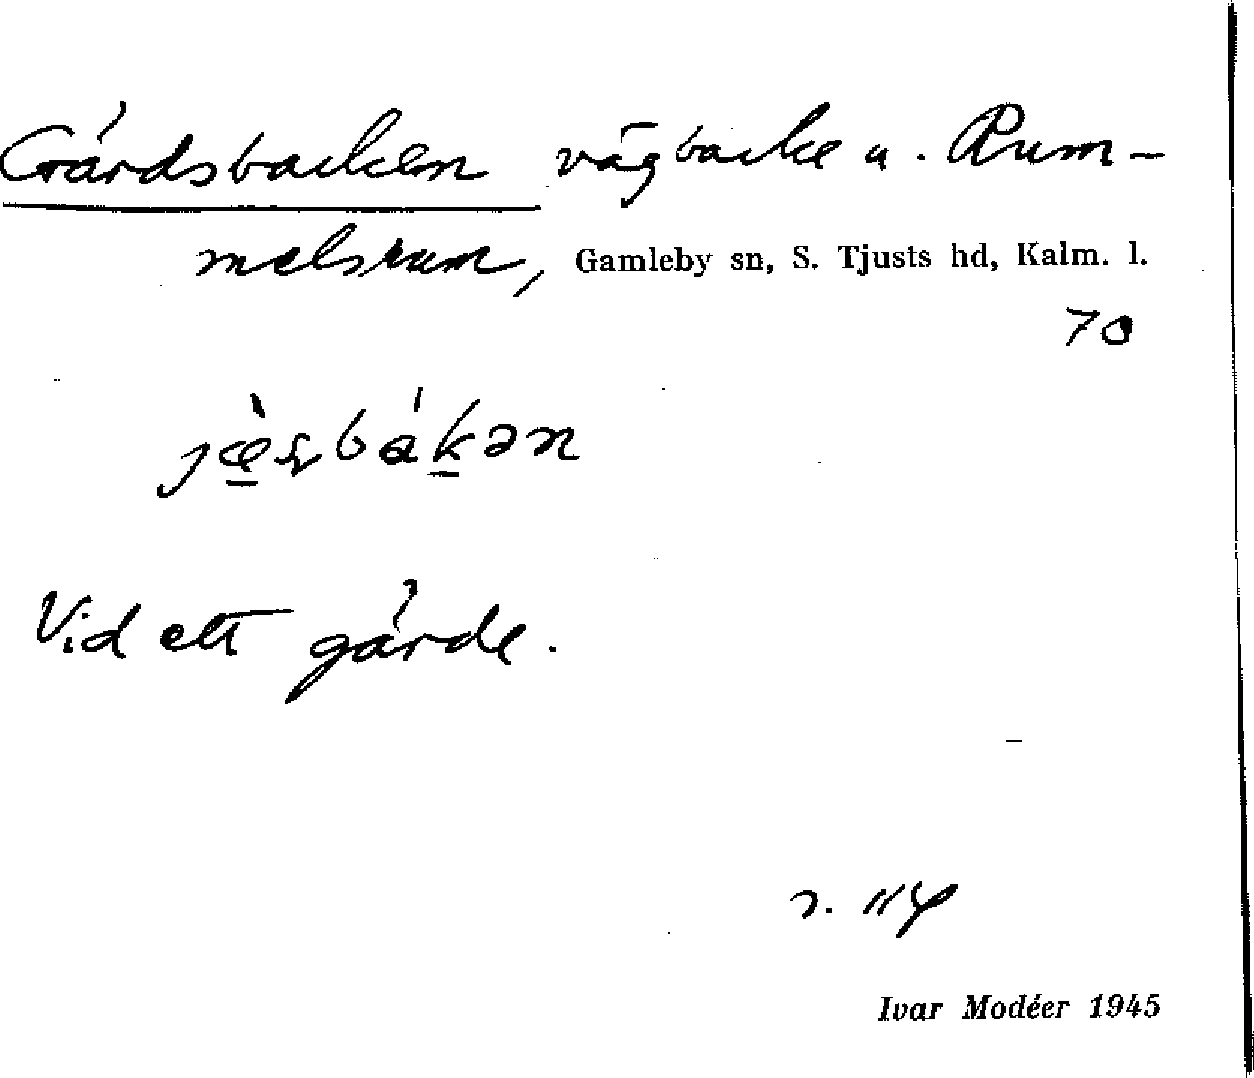 Gärdsbacken vägbacke u. Rum-
melsrum, Gamleby sn, S. Tjusts hd, Kalm. l.
70
Vid ett gärde.
s. 114
Ivar Modéer 1945